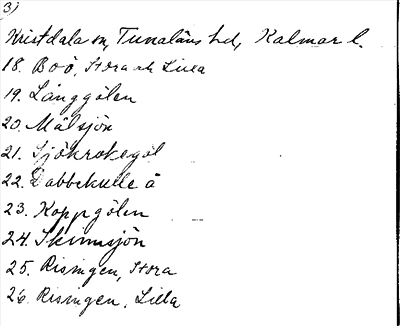 3)
Kristdala sn, Tunaläns hd, Kalmar l.
18. Boö, Stora och Lilla
19. Långgölen
20. Målsjön
21. Sjökrokegöl
22. Dabbekulle å
23. Koppgölen
24. Skinnsjön
25. Risingen, Stora
26. Risingen, Lilla